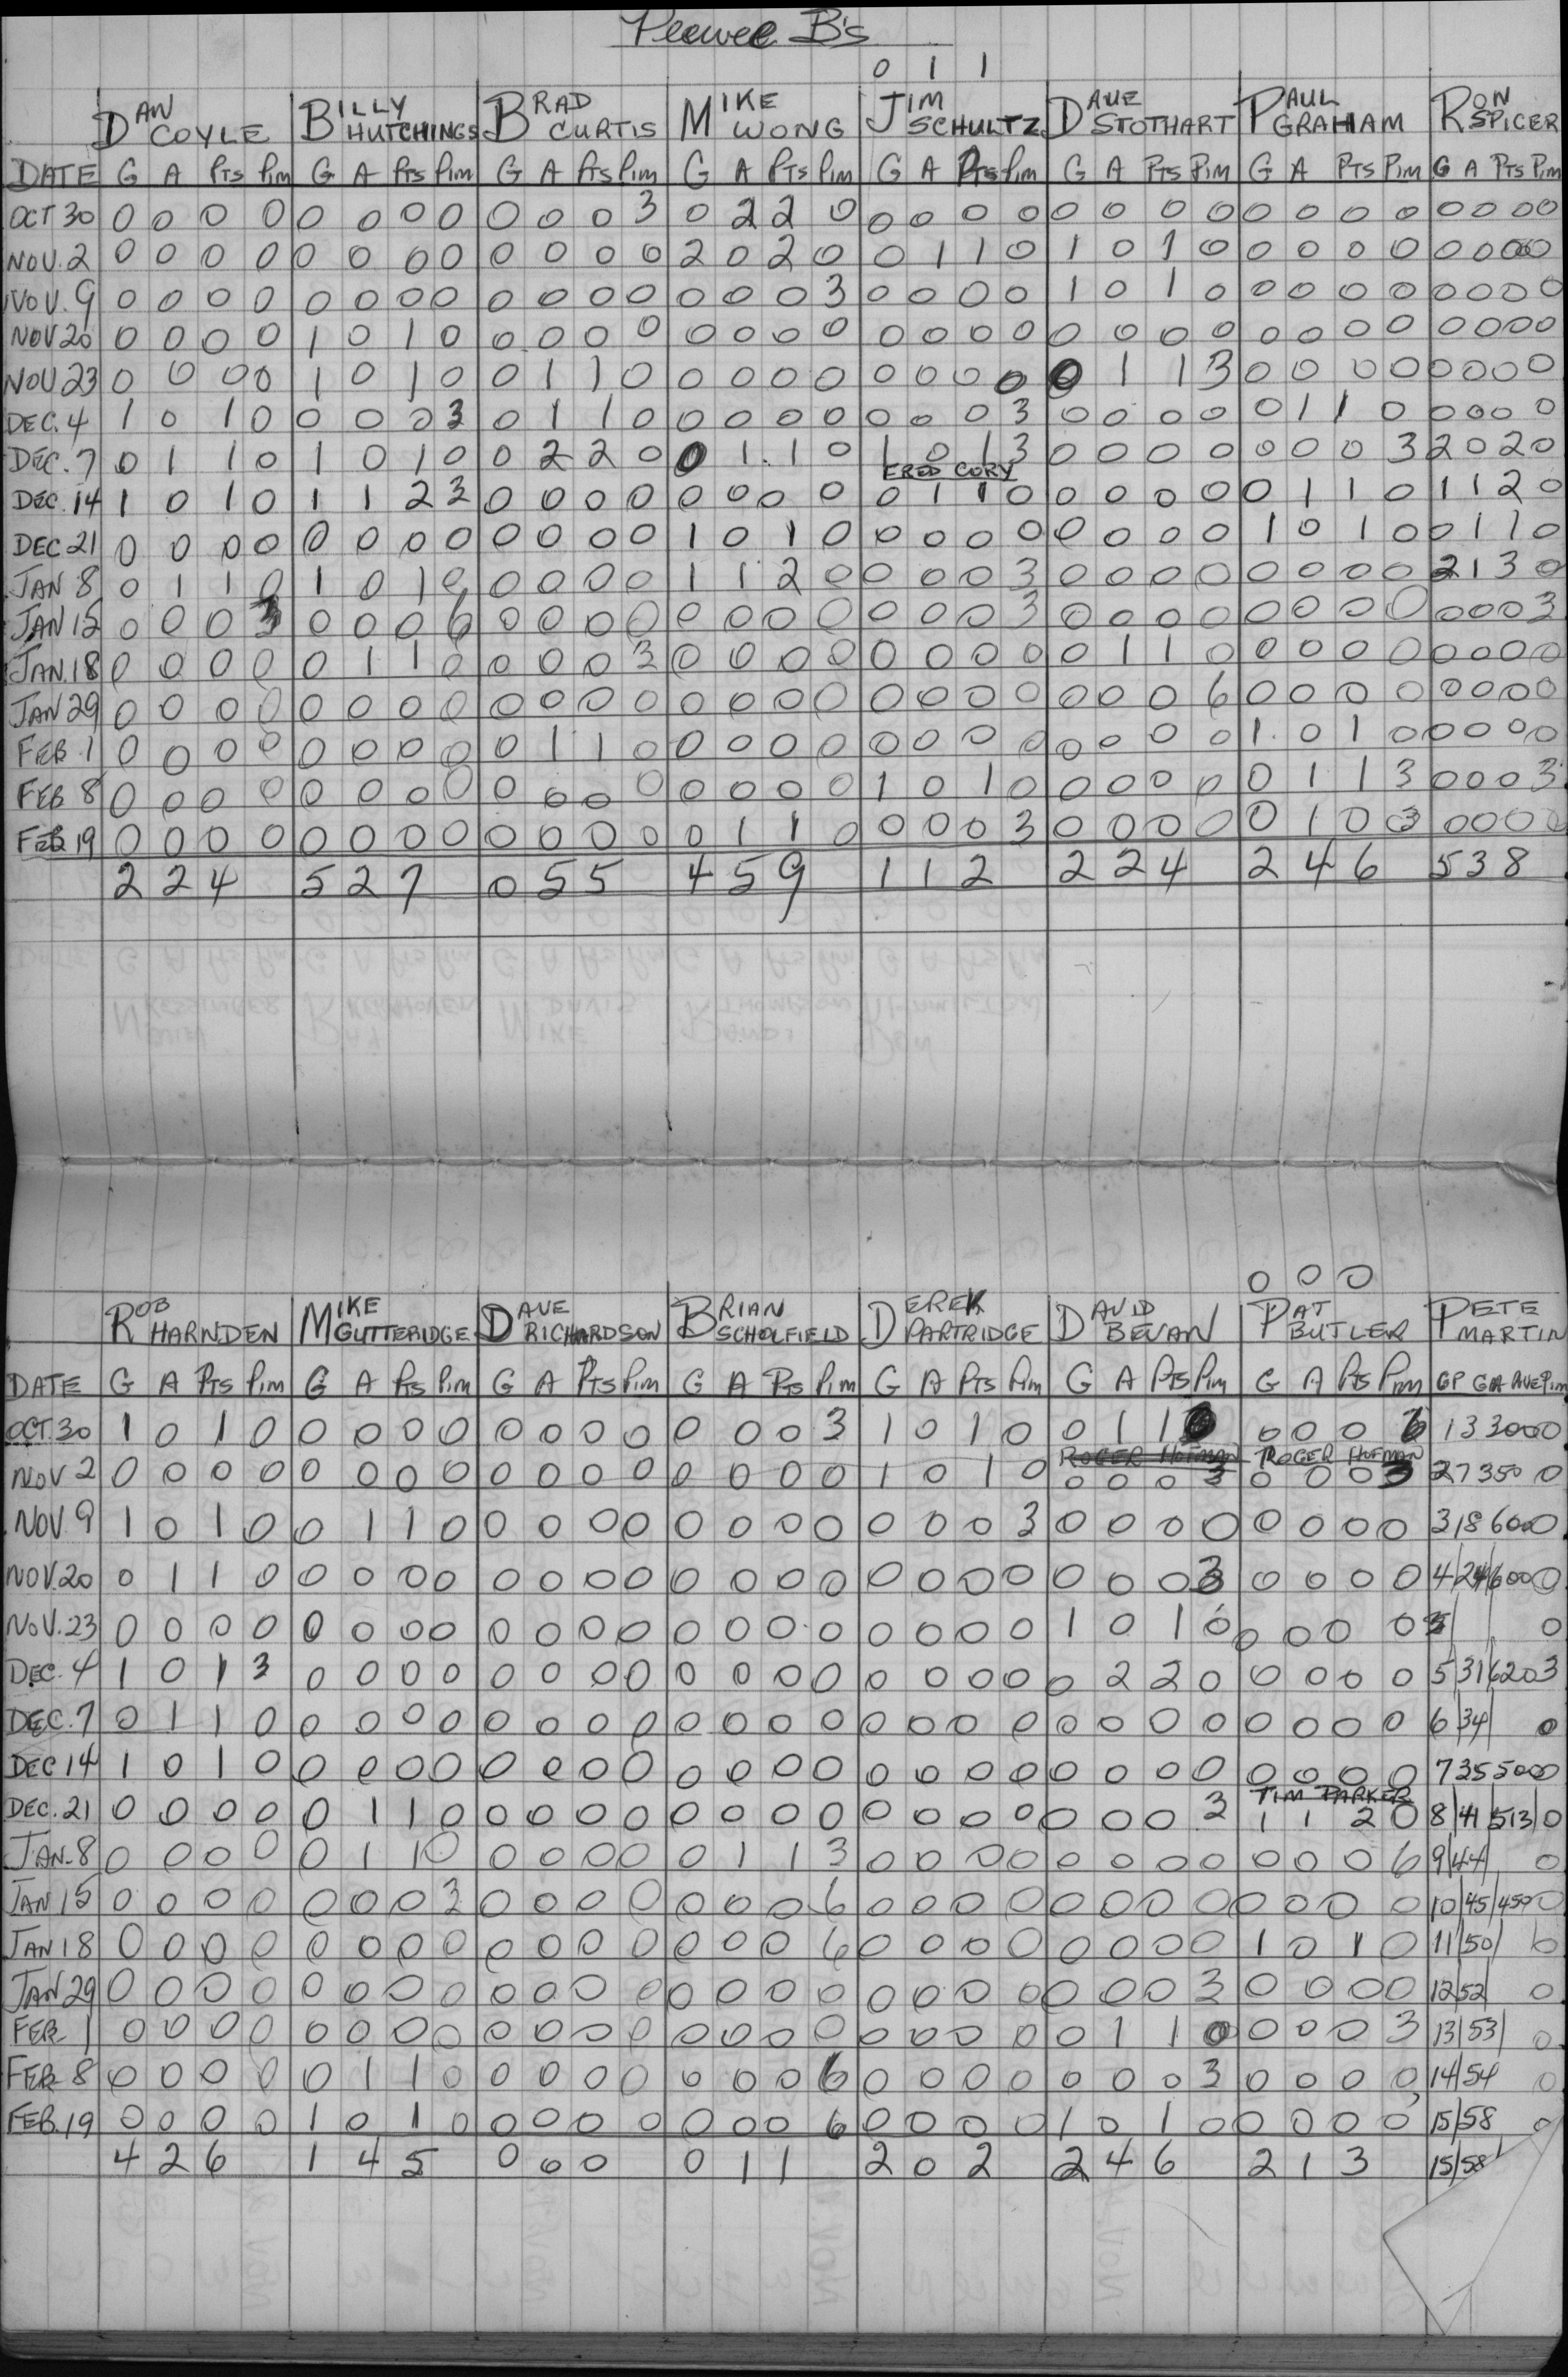 Peewee B's
0 1 1
DAN COYLE BILLY HUTCHINGS BRAD CURTIS MIKE WONG JIM SCHULTZ DAVE STOTHART PAUL GRAHAM RON SPICER
DATE G A Pts Pim G A Pts Pim G A Pts Pim G A Pts Pim G A Pts Pim G A Pts Pim G A Pts Pim G A Pts Pim
OCT 30 0 0 0 0 0 0 0 0 0 0 0 3 0 2 2 0 0 0 0 0 0 0 0 0 0 0 0 0 0 0 0 0
NOV. 2 0 0 0 0 0 0 0 0 0 0 0 0 2 0 2 0 0 1 1 0 1 0 1 0 0 0 0 0 0 0 0 0
NOV. 9 0 0 0 0 0 0 0 0 0 0 0 0 0 0 0 3 0 0 0 0 1 0 1 0 0 0 0 0 0 0 0 0
NOV 20 0 0 0 0 1 0 1 0 0 0 0 0 0 0 0 0 0 0 0 0 0 0 0 0 0 0 0 0 0 0 0 0
NOV 23 0 0 0 0 1 0 1 0 0 1 1 0 0 0 0 0 0 0 0 0 0 1 1 3 0 0 0 0 0 0 0 0
DEC. 4 1 0 1 0 0 0 0 3 0 1 1 0 0 0 0 0 0 0 0 3 0 0 0 0 0 1 1 0 0 0 0 0
DEC. 7 0 1 1 0 1 0 1 0 0 2 2 0 0 1 1 0 1 0 1 3 0 0 0 0 0 0 0 3 2 0 2 0
FRED CORY
DEC. 14 1 0 1 0 1 1 2 3 0 0 0 0 0 0 0 0 0 1 1 0 0 0 0 0 0 1 1 0 1 1 2 0
DEC 21 0 0 0 0 0 0 0 0 0 0 0 0 1 0 1 0 0 0 0 0 0 0 0 0 1 0 1 0 0 1 1 0
JAN 8 0 1 1 0 1 0 1 0 0 0 0 0 1 1 2 0 0 0 0 3 0 0 0 0 0 0 0 0 2 1 3 0
JAN 15 0 0 0 3 0 0 0 6 0 0 0 0 0 0 0 0 0 0 0 3 0 0 0 0 0 0 0 0 0 0 0 3
JAN. 18 0 0 0 0 0 1 1 0 0 0 0 3 0 0 0 0 0 0 0 0 0 1 1 0 0 0 0 0 0 0 0 0
JAN 29 0 0 0 0 0 0 0 0 0 0 0 0 0 0 0 0 0 0 0 0 0 0 0 6 0 0 0 0 0 0 0 0
FEB 1 0 0 0 0 0 0 0 0 0 1 1 0 0 0 0 0 0 0 0 0 0 0 0 0 1 0 1 0 0 0 0 0
FEB 8 0 0 0 0 0 0 0 0 0 0 0 0 0 0 0 0 1 0 1 0 0 0 0 0 0 1 1 3 0 0 0 3
FEB 19 0 0 0 0 0 0 0 0 0 0 0 0 0 1 1 0 0 0 0 3 0 0 0 0 0 1 0 3 0 0 0 0
2 2 4 5 2 7 0 5 5 4 5 9 1 1 2 2 2 4 2 4 6 5 3 8
0 0 0
ROB HARNDEN MIKE GUTTERIDGE DAVE RICHARDSON BRIAN SCHOLFIELD DEREK PARTRIDGE DAVID BEVAN PAT BUTLER PETE MARTIN
DATE G A Pts Pim G A Pts Pim G A Pts Pim G A Pts Pim G A Pts Pim G A Pts Pim G A Pts Pim GP GA AVE Pim
OCT. 30 1 0 1 0 0 0 0 0 0 0 0 0 0 0 0 3 1 0 1 0 0 1 1 0 0 0 0 6 1 3 3000
ROGER HOFMAN ROGER HOFMAN
NOV 2 0 0 0 0 0 0 0 0 0 0 0 0 0 0 0 0 1 0 1 0 0 0 0 3 0 0 0 3 2 7 350 0
NOV. 9 1 0 1 0 0 1 1 0 0 0 0 0 0 0 0 0 0 0 0 3 0 0 0 0 0 0 0 0 3 18 600 0
NOV. 20 0 1 1 0 0 0 0 0 0 0 0 0 0 0 0 0 0 0 0 0 0 0 0 3 0 0 0 0 4 24 600 0
NOV. 23 0 0 0 0 0 0 0 0 0 0 0 0 0 0 0 0 0 0 0 0 1 0 1 0 0 0 0 0 0
DEC. 4 1 0 1 3 0 0 0 0 0 0 0 0 0 0 0 0 0 0 0 0 0 2 2 0 0 0 0 0 5 31 620 3
DEC. 7 0 1 1 0 0 0 0 0 0 0 0 0 0 0 0 0 0 0 0 0 0 0 0 0 0 0 0 0 6 34 0
DEC 14 1 0 1 0 0 0 0 0 0 0 0 0 0 0 0 0 0 0 0 0 0 0 0 0 0 0 0 0 7 35 500 0
TIM PARKER
DEC. 21 0 0 0 0 0 1 1 0 0 0 0 0 0 0 0 0 0 0 0 0 0 0 0 3 1 1 2 0 8 41 513 0
JAN-8 0 0 0 0 0 1 1 0 0 0 0 0 0 1 1 3 0 0 0 0 0 0 0 0 0 0 0 6 9 44 0
JAN 15 0 0 0 0 0 0 0 3 0 0 0 0 0 0 0 6 0 0 0 0 0 0 0 0 0 0 0 0 10 45 450 0
JAN 18 0 0 0 0 0 0 0 0 0 0 0 0 0 0 0 6 0 0 0 0 0 0 0 0 1 0 1 0 11 50
JAN 29 0 0 0 0 0 0 0 0 0 0 0 0 0 0 0 0 0 0 0 0 0 0 0 3 0 0 0 0 12 52 0
FEB 1 0 0 0 0 0 0 0 0 0 0 0 0 0 0 0 0 0 0 0 0 0 1 1 0 0 0 0 3 13 53 0
FEB 8 0 0 0 0 0 1 1 0 0 0 0 0 0 0 0 6 0 0 0 0 0 0 0 3 0 0 0 0 14 54 0
FEB. 19 0 0 0 0 1 0 1 0 0 0 0 0 0 0 0 6 0 0 0 0 1 0 1 0 0 0 0 0 15 58 0
4 2 6 1 4 5 0 0 0 0 1 1 2 0 2 2 4 6 2 1 3 15/58